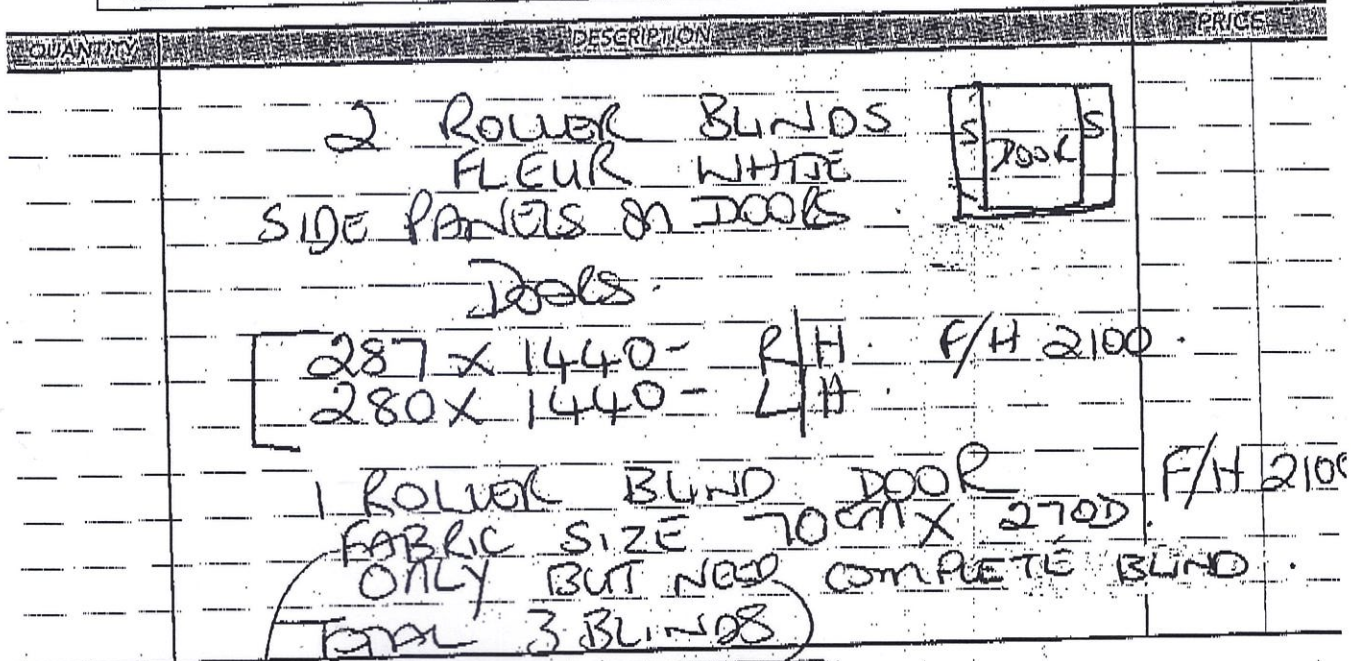 QUANTITY DESCRIPTION PRICE
2 ROLLER BLINDS
FLEUR WHITE
S DOOR S
SIDE PANELS ON DOORS.
DOORS.
287 x 1440 - R/H. F/H 2100.
280 x 1440 - L/H.
1 ROLLER BLIND DOOR F/H 2100
FABRIC SIZE 70cm x 270D.
ONLY BUT NEED COMPLETE BLIND.
TOTAL 3 BLINDS